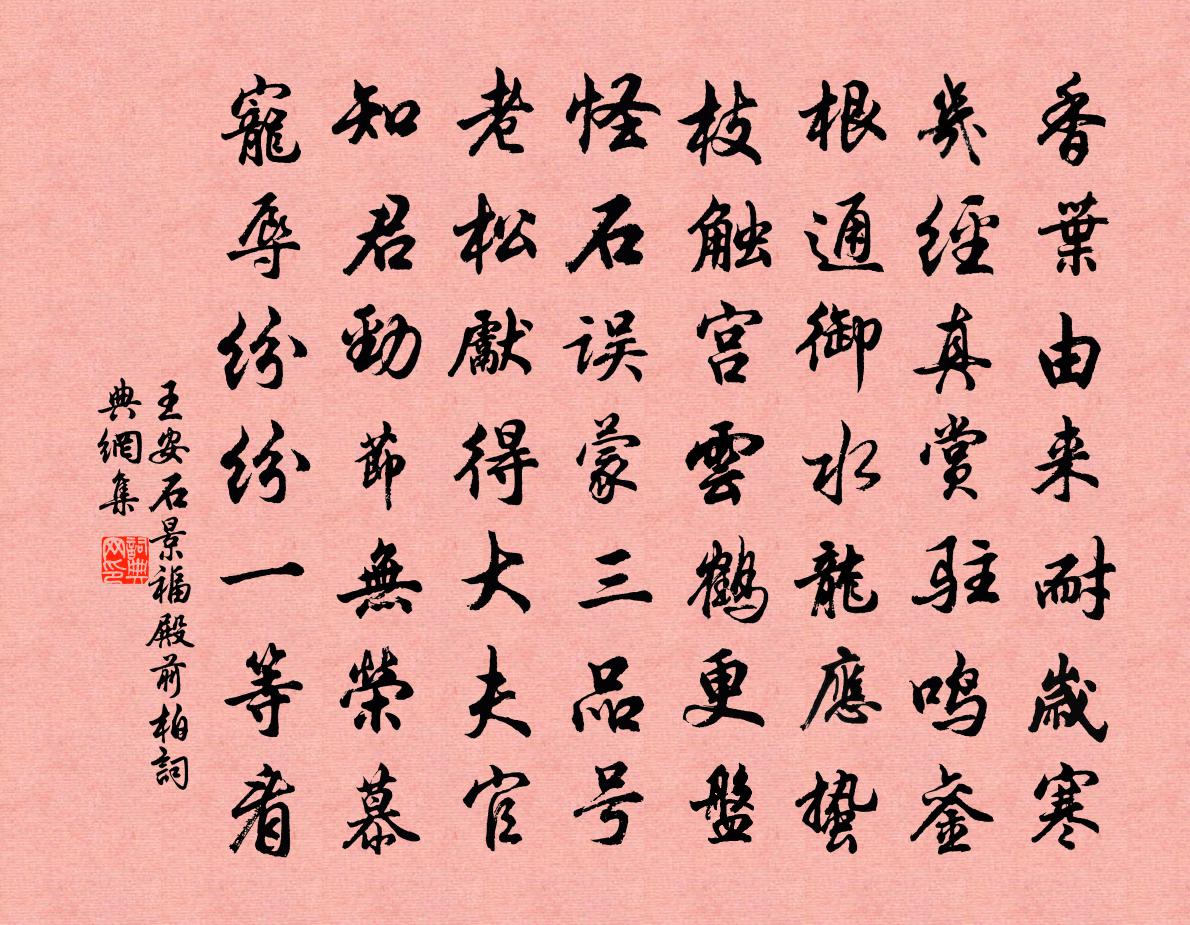 香葉由来耐歲寒
幾經真賞駐鳴銮
根通御水龍應蛰
枝触宫雲鶴更盤
怪石误蒙三品号
老松獻得大夫官
知君勁節無榮慕
寵辱紛紛一等看
王安石景福殿前柏詞
典網集
詞典
网